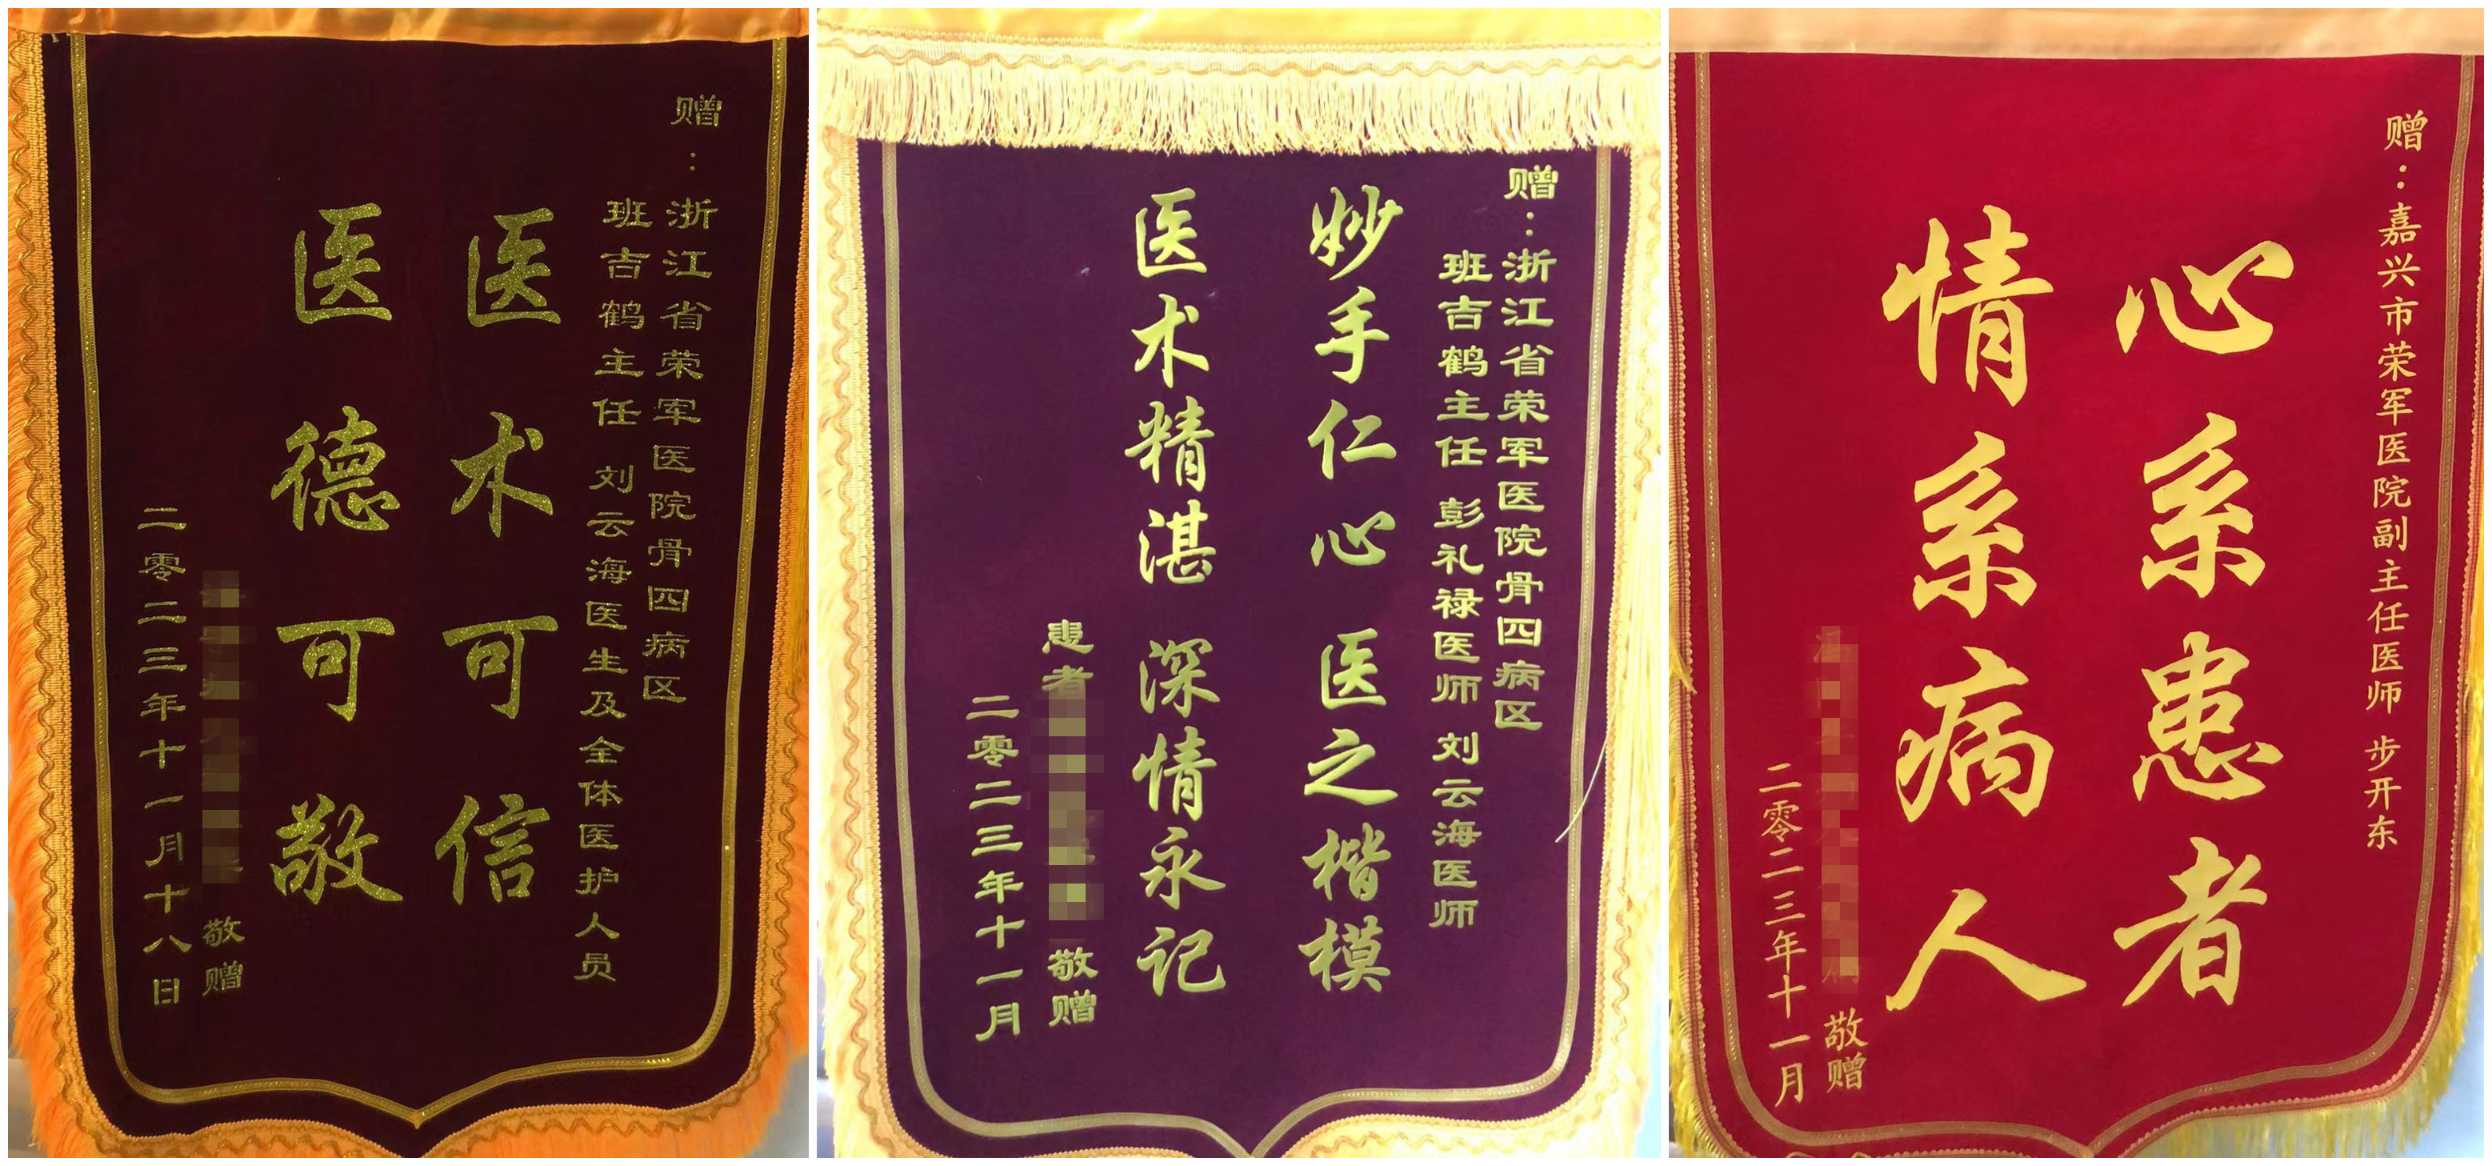 赠：浙江省荣军医院骨四病区
班吉鹤主任 刘云海医生及全体医护人员
医术可信
医德可敬
敬赠
二零二三年十一月十八日
赠：浙江省荣军医院骨四病区
班吉鹤主任 彭礼禄医师 刘云海医师
妙手仁心 医之楷模
医术精湛 深情永记
患者
敬赠
二零二三年十一月
赠：嘉兴市荣军医院副主任医师 步开东
心系患者
情系病人
敬赠
二零二三年十一月